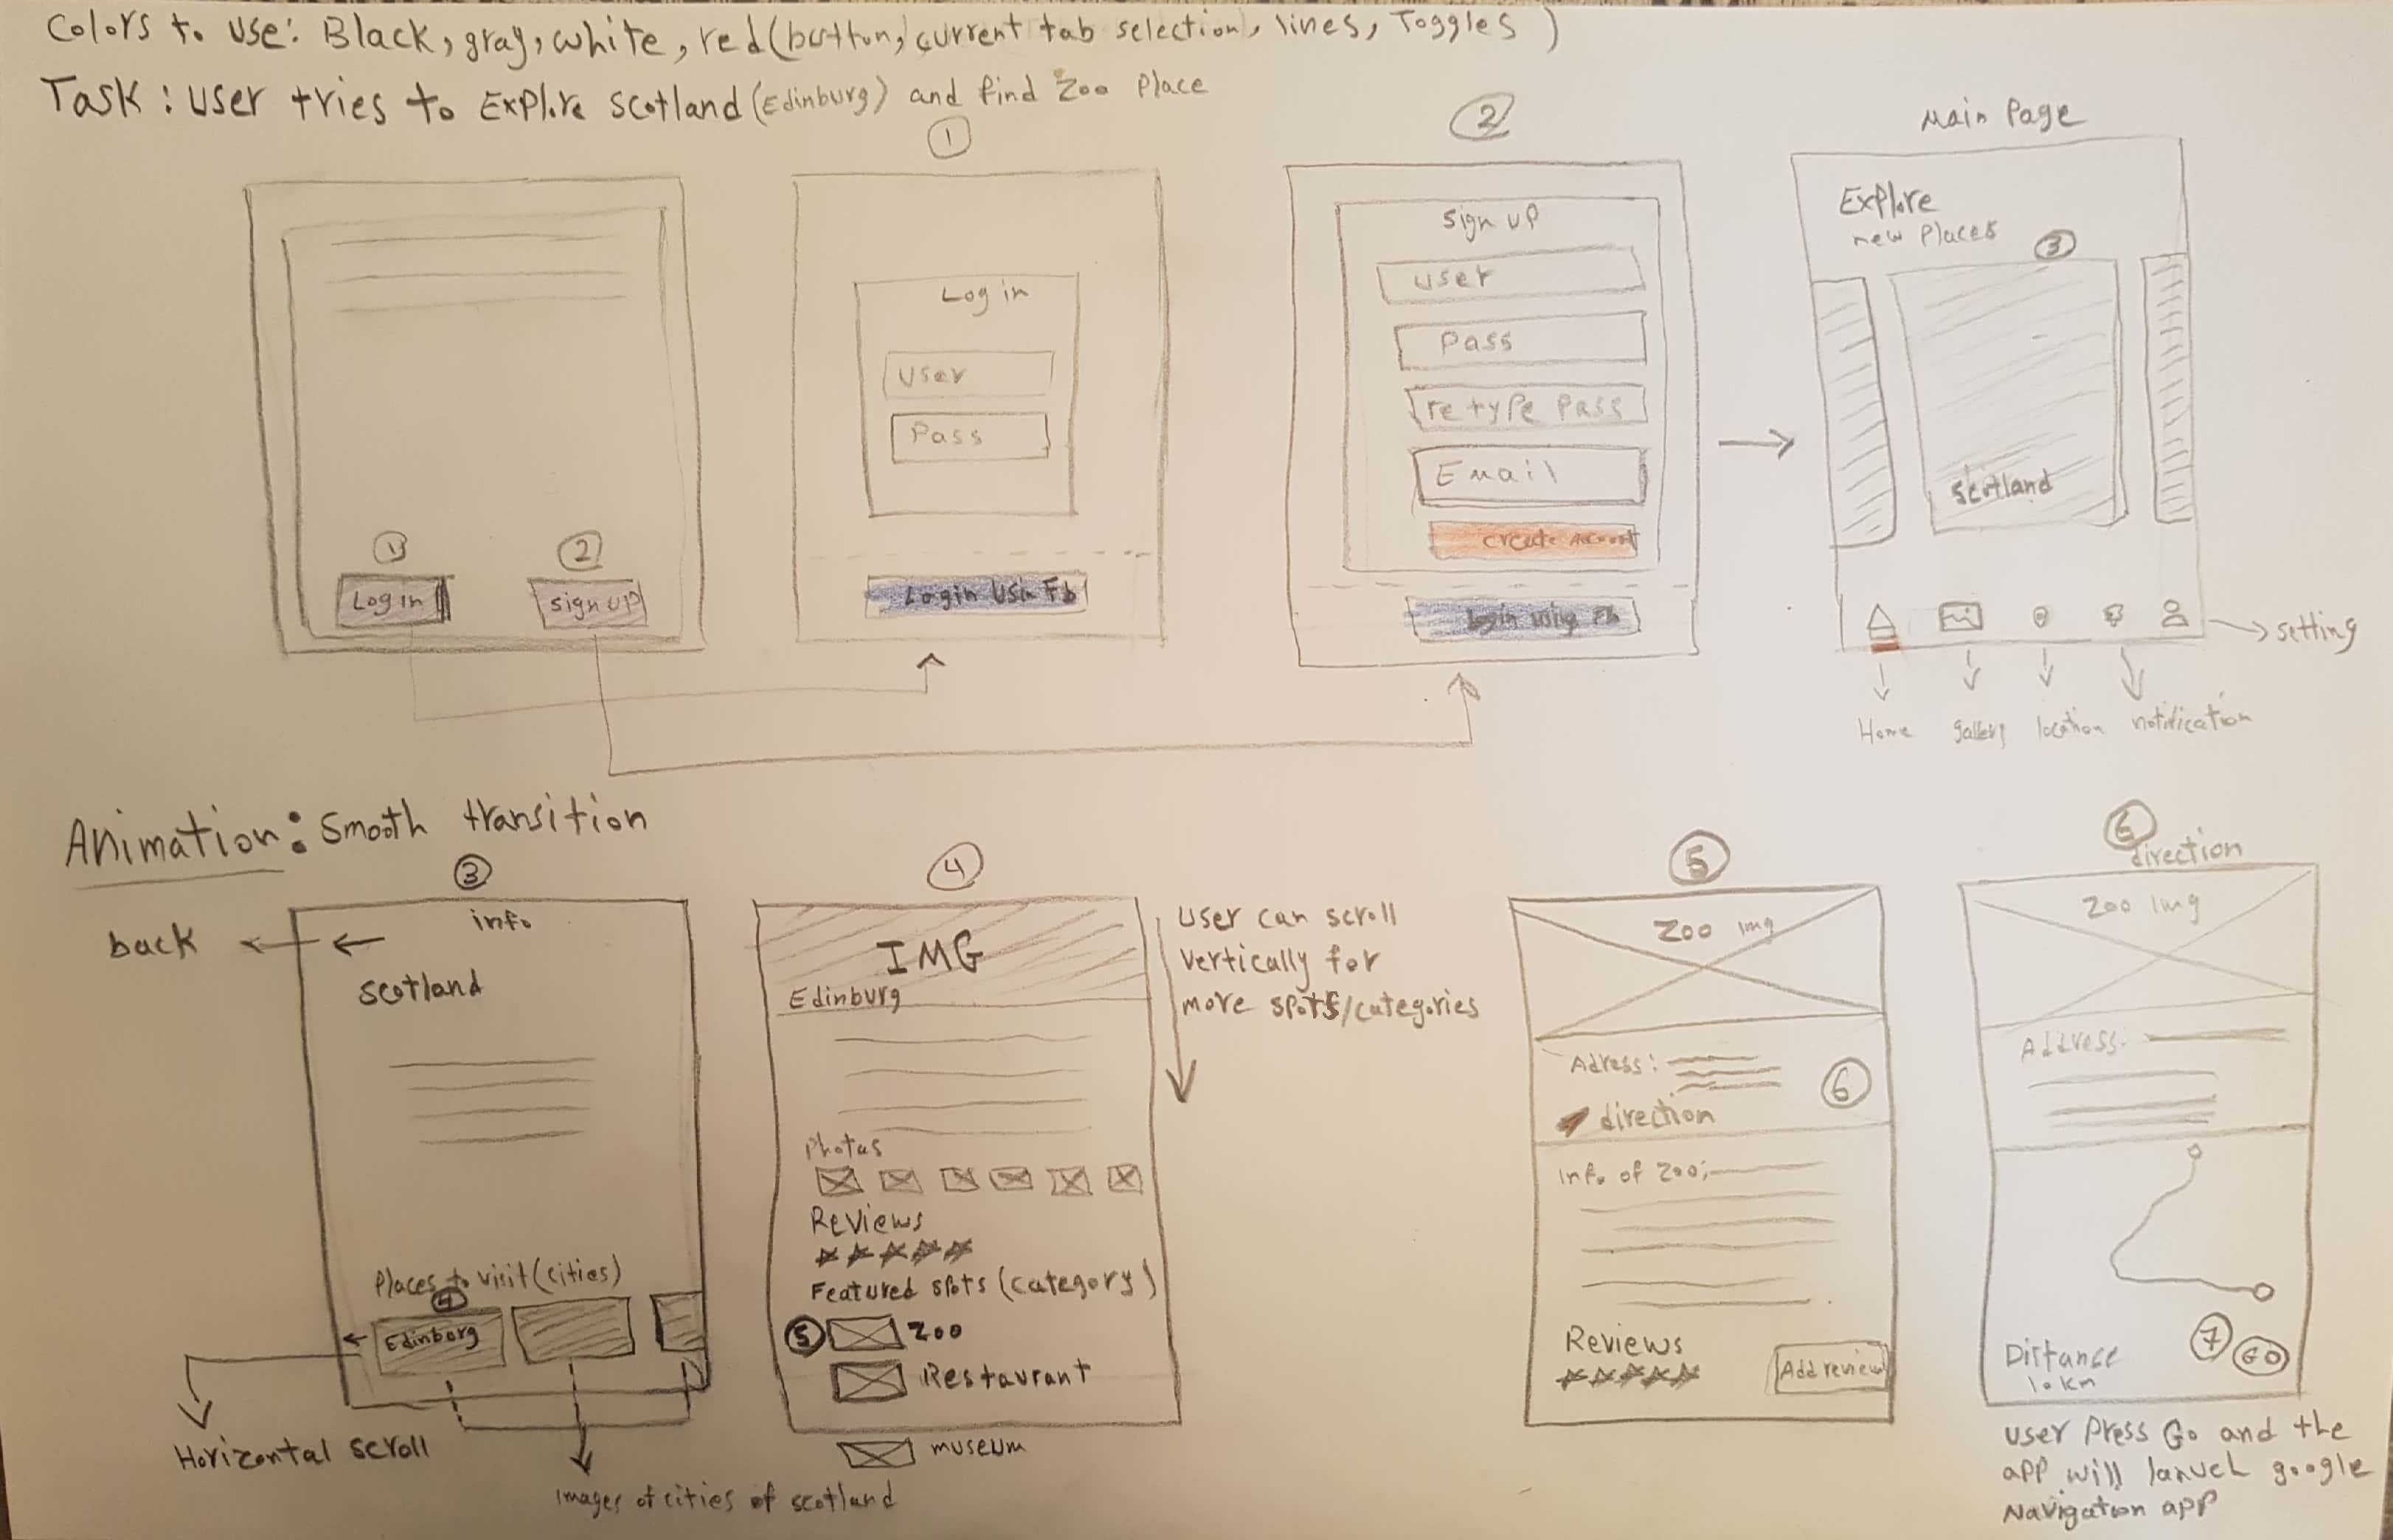 Colors to use: Black, gray, white, red (button, current tab selection, lines, Toggles)
Task: user tries to Explore Scotland (Edinburg) and find Zoo Place
1
2
Main Page
1
Log in
2
sign up
Log in
User
Pass
Login Usin Fb
sign up
user
Pass
retype Pass
Email
create Account
Login using Fb
Explore
new Places
3
scotland
setting
Home
gallery
location
notification
Animation: Smooth transition
3
back
info
scotland
Places to visit (cities)
4
Edinborg
Horizontal scroll
Images of cities of scotland
4
IMG
Edinburg
User can scroll
vertically for
more spots/categories
Photos
Reviews
Featured spots (category)
5
Zoo
Restaurant
museum
5
Zoo img
Adress:
6
direction
Info of Zoo:
Reviews
Add review
6
direction
Zoo Img
Address:
Distance
10 km
7
GO
user Press Go and the
app will lanuch google
Navigation app